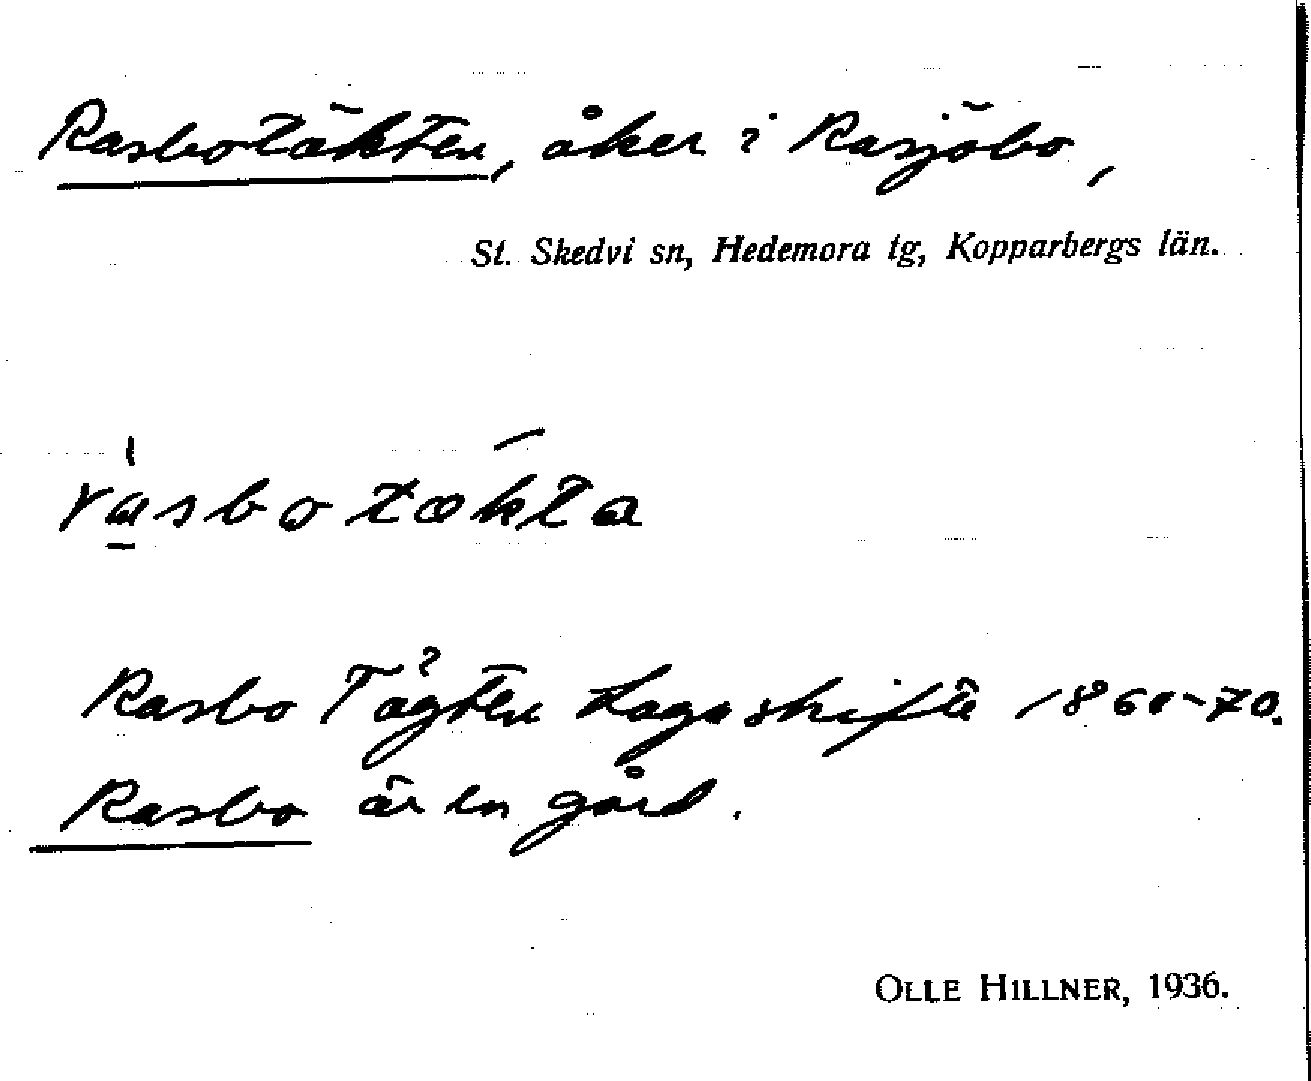 Rasbotäkten, åker i Rasjöbo,
St. Skedvi sn, Hedemora tg, Kopparbergs län.
rasbotækta
Rasbo Tägten Lagaskifte 1860-70.
Rasbo är en gård.
OLLE HILLNER, 1936.